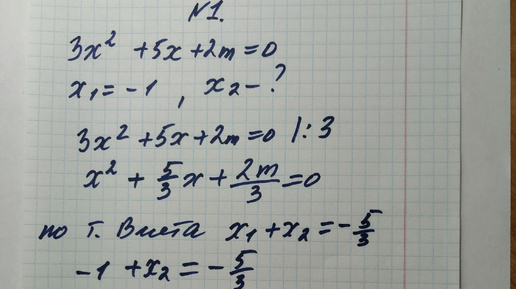 №1.
3x² + 5x + 2m = 0
x₁ = -1, x₂ - ?
3x² + 5x + 2m = 0 |: 3
x² + 5/3 x + 2m/3 = 0
по т. Виета x₁ + x₂ = - 5/3
-1 + x₂ = - 5/3